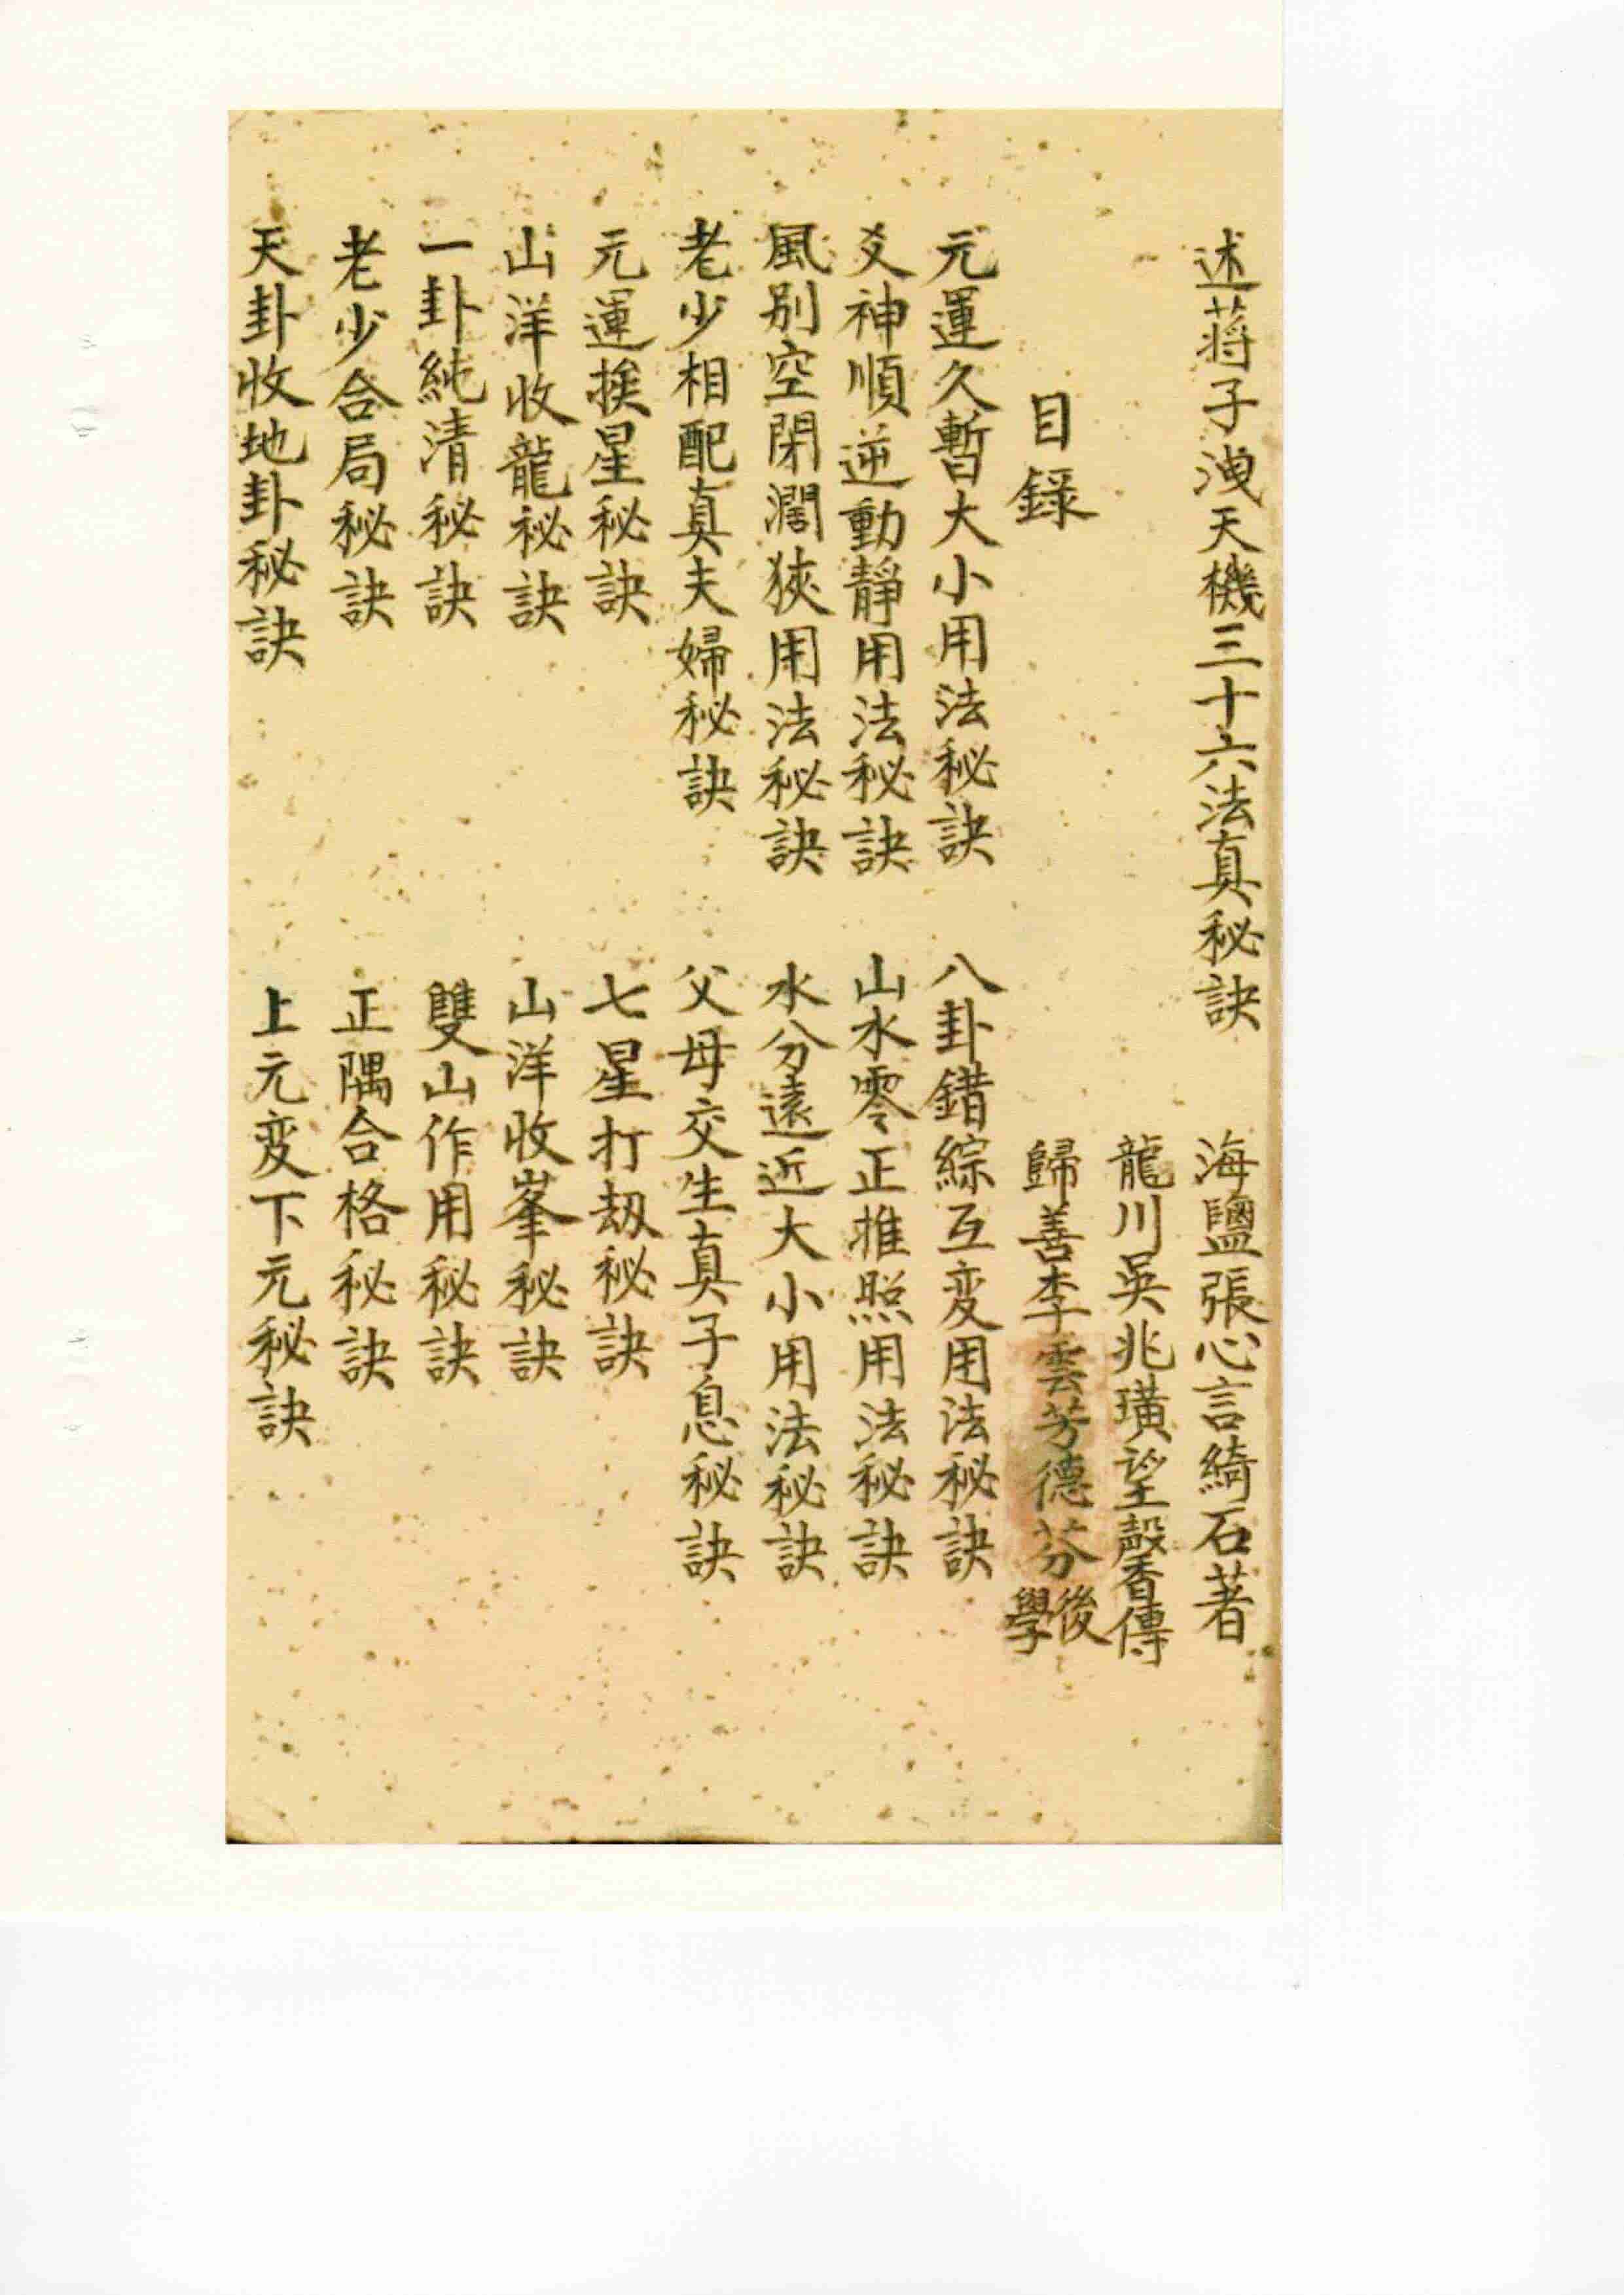 述蔣子洩天機三十六法真秘訣
海鹽張心言綺石著
龍川吳兆璜望馨香傳
歸善李雲芳德芬後學
目錄
元運久暫大小用法秘訣
八卦錯綜互变用法秘訣
爻神順逆動靜用法秘訣
山水零正推照用法秘訣
風別空閉濶狹用法秘訣
水分遠近大小用法秘訣
老少相配真夫婦秘訣
父母交生真子息秘訣
元運挨星秘訣
七星打刼秘訣
山洋收龍秘訣
山洋收峯秘訣
一卦純清秘訣
雙山作用秘訣
老少合局秘訣
正隅合格秘訣
天卦收地卦秘訣
上元变下元秘訣